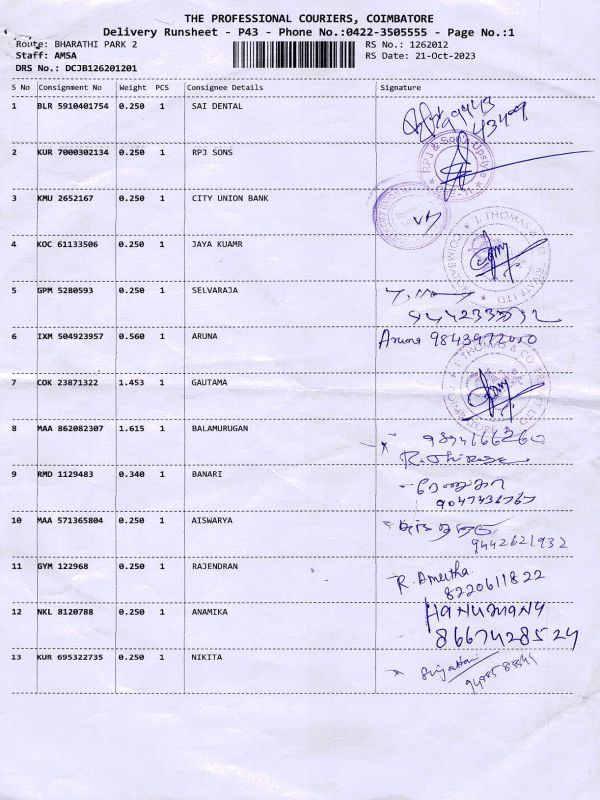 THE PROFESSIONAL COURIERS, COIMBATORE
Delivery Runsheet - P43 - Phone No.:0422-3505555 - Page No.:1
Route: BHARATHI PARK 2 RS No.: 1262012
Staff: AMSA RS Date: 21-Oct-2023
DRS No.: DCJB126201201
S No Consignment No Weight PCS Consignee Details Signature
1 BLR 5910401754 0.250 1 SAI DENTAL
2 KUR 7000302134 0.250 1 RPJ SONS
RPJ & Son's Upstyle
3 KMU 2652167 0.250 1 CITY UNION BANK
4 KOC 61133506 0.250 1 JAYA KUAMR
J. THOMAS & COIMBATORE
5 GPM 5280593 0.250 1 SELVARAJA
6 IXM 504923957 0.560 1 ARUNA Aruna
7 COK 23871322 1.453 1 GAUTAMA
J. THOMAS & CO COIMBATORE
8 MAA 862082307 1.615 1 BALAMURUGAN
9 RMD 1129483 0.340 1 BANARI
10 MAA 571365804 0.250 1 AISWARYA
9442621932
11 GYM 122968 0.250 1 RAJENDRAN R. Amutha
8220611822
12 NKL 8120788 0.250 1 ANAMIKA HANUMANY
8667428524
13 KUR 695322735 0.250 1 NIKITA